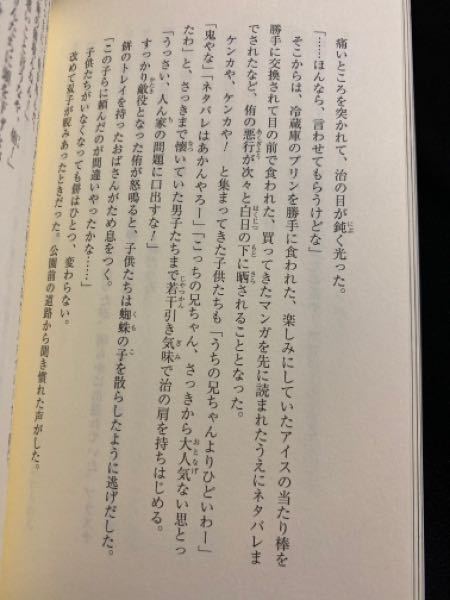 痛いところを突かれて、治の目が鈍く光った。
「……ほんなら、言わせてもらうけどな」
そこからは、冷蔵庫のプリンを勝手に食われた、楽しみにしていたアイスの当たり棒を
勝手に交換されて目の前で食われた、買ってきたマンガを先に読まれたうえにネタバレま
でされたなど、侑の悪行が次々と白日の下に晒されることとなった。
ケンカや、ケンカや！　と集まってきた子供たちも「うちの兄ちゃんよりひどいわー」
「鬼やな」「ネタバレはあかんやろー」「こっちの兄ちゃん、さっきから大人気ない思とっ
たわ」と、さっきまで懐いていた男子たちまで若干引き気味で治の肩を持ちはじめる。
「うっさい、人ん家の問題に口出すな！」
すっかり敵役となった侑が怒鳴ると、子供たちは蜘蛛の子を散らしたように逃げだした。
餅のトレイを持ったおばさんがため息をつく。
「この子らに頼んだのが間違いやったかな……」
子供たちがいなくなっても餅はひとつ、変わらない。
改めて双子が睨みあったときだった。公園前の道路から聞き慣れた声がした。